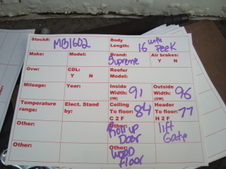 Stock#: MB1602 Body Length: 16 with PEEK
Make: Model: Brand: Supreme Air brakes: Y N
Gvw: CDL: Y N Reefer Model:
Mileage: Year: Inside Width: 91 (IN) Outside Width: 96 (IN)
Temperature range: Elect. Stand by: Ceiling To floor: 84 H 2 F Header To floor: 77 H 2 F
Other: Other: Roll up Door lift Gate
Other: Other: Wood Floor